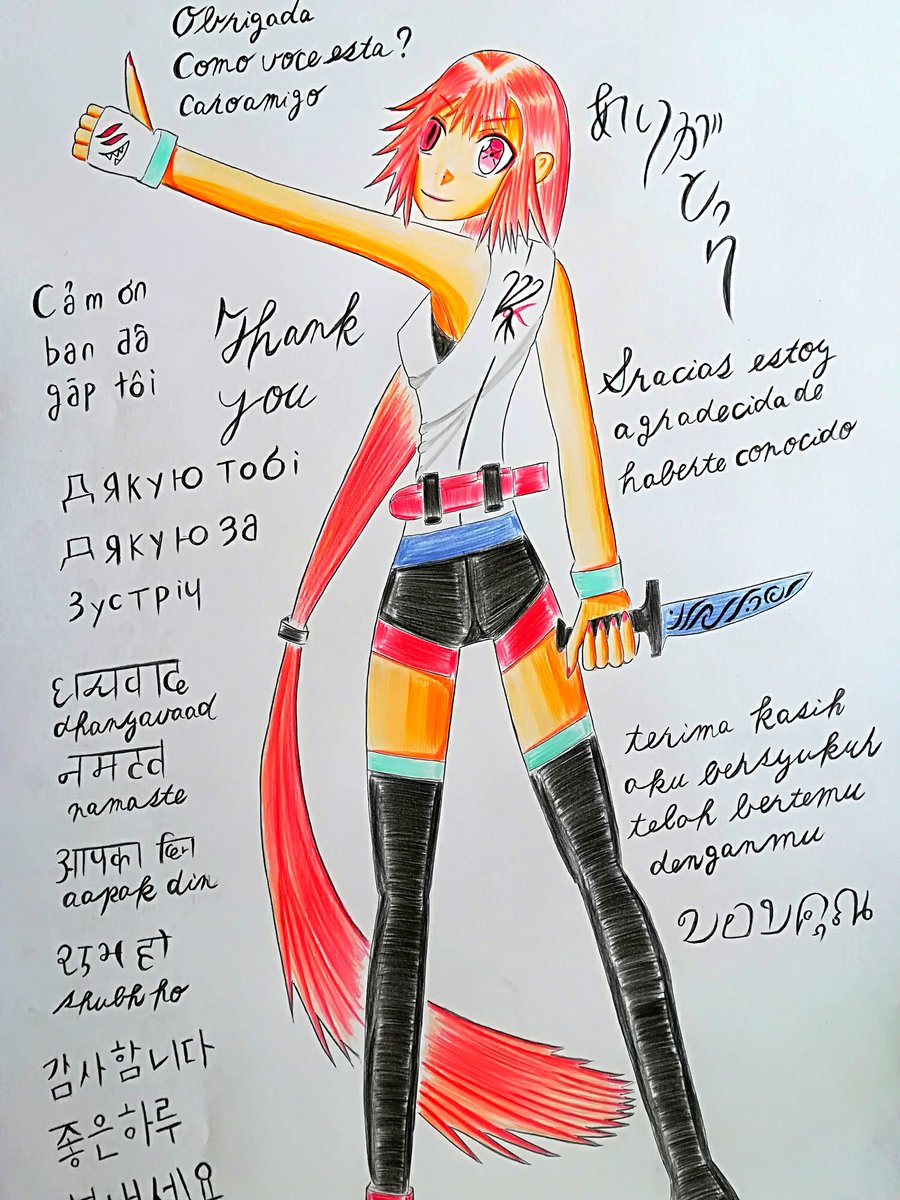 Obrigada
Como voce esta?
Caro amigo
ありがとう
Cảm ơn
bạn đã
gặp tôi
Thank
you
Gracias estoy
agradecida de
haberte conocido
Дякую тобі
Дякую за
зустріч
धन्यवाद
dhanyavaad
नमस्ते
namaste
आपका दिन
aapak din
शुभ हो
shubh ho
감사합니다
좋은 하루
보내세요
terima kasih
aku bersyukur
telah bertemu
denganmu
ขอบคุณ